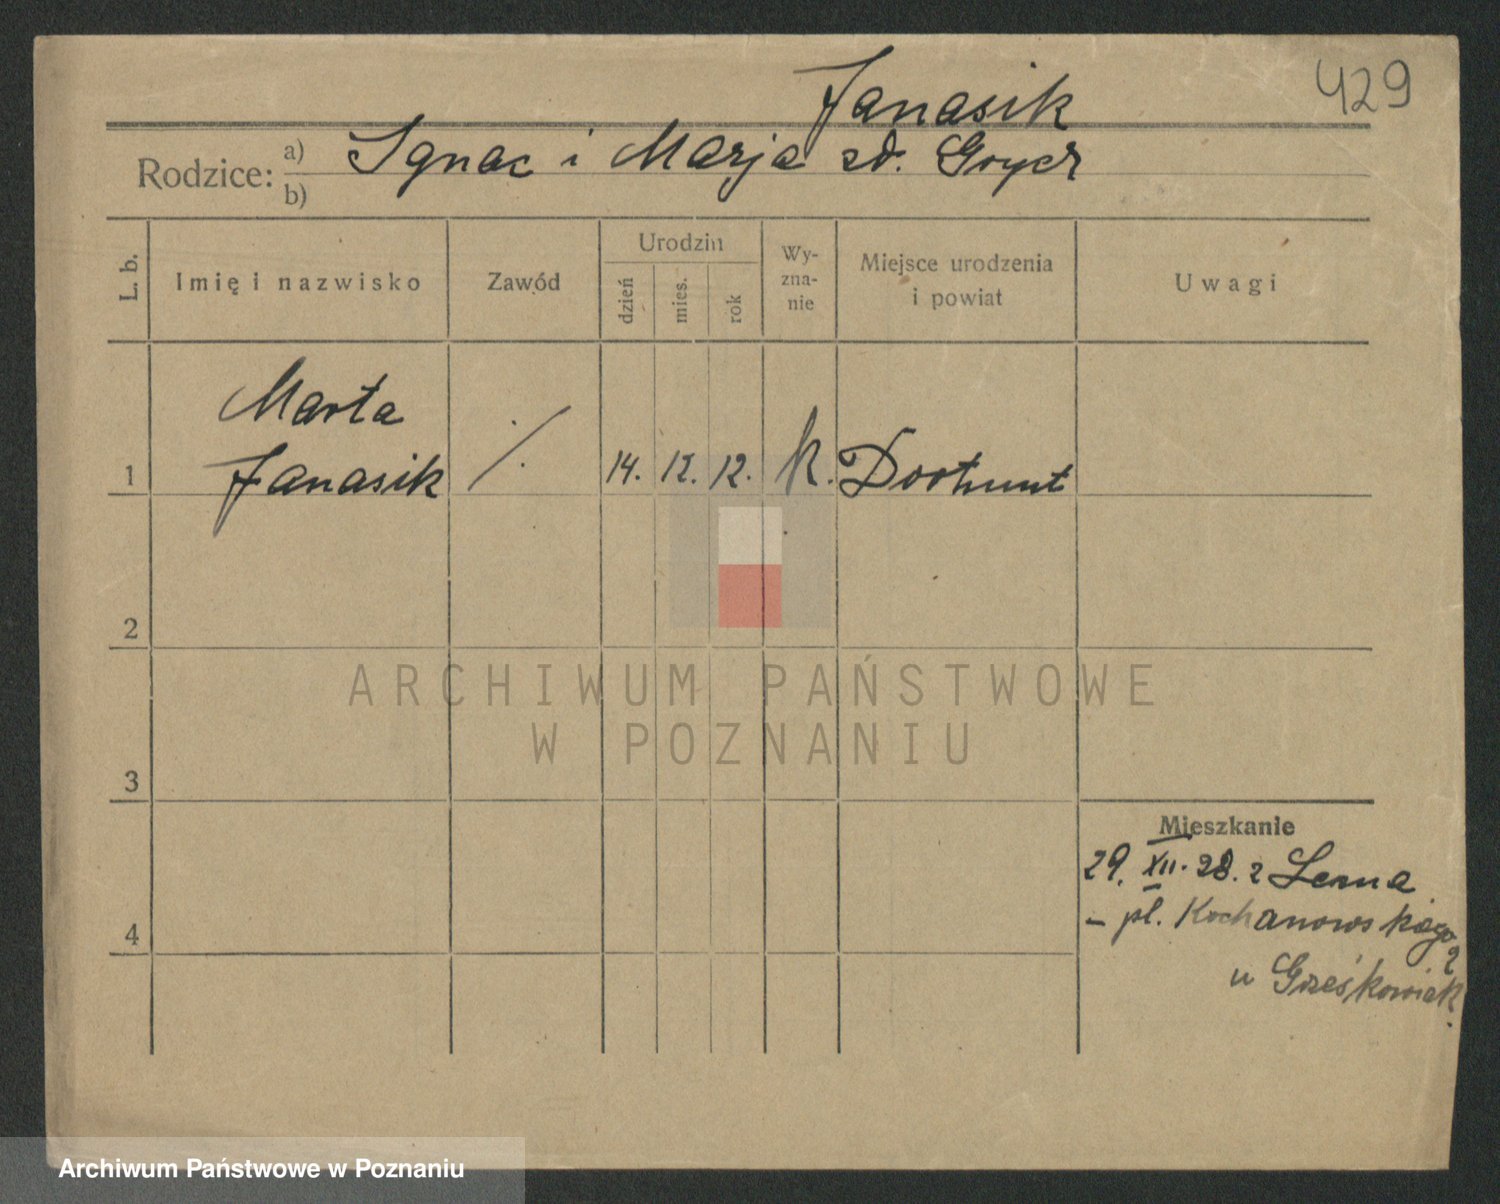 429
Janasik
Rodzice: a) Ignac i Marja zd. Grycz
b)
L. b.
Imię i nazwisko
Zawód
Urodzin
dzień
mies.
rok
Wy-
zna-
nie
Miejsce urodzenia
i powiat
Uwagi
Marta
1 Janasik ./. 14. 12. 12. k. Dortmunt
2
3
4
Mieszkanie
29. XII. 28. z Lesna
– pl. Kochanowskiego 2
u Grześkowiak.
ARCHIWUM PAŃSTWOWE
W POZNANIU
Archiwum Państwowe w Poznaniu